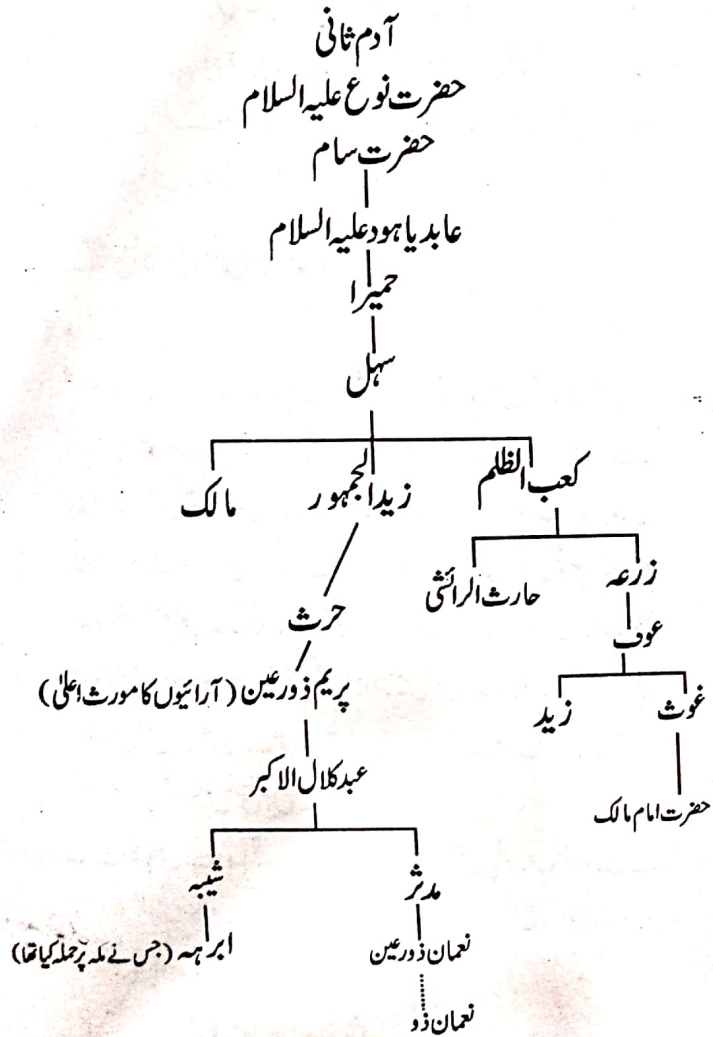 آدم ثانی
حضرت نوع علیہ السلام
حضرت سام
عابد یا ہود علیہ السلام
حمیرا
سہل
کعب الظلم
زید الجمہور
مالک
زرعہ
حارث الرائشی
عوف
حرث
غوث
زید
پریم ذورعین (آرائیوں کا مورث اعلیٰ)
عبد کلال الاکبر
حضرت امام مالک
مدثر
شیبہ
نعمان ذورعین
ابرہہ (جس نے ملہ پر حملہ کیا تھا)
نعمان ذو